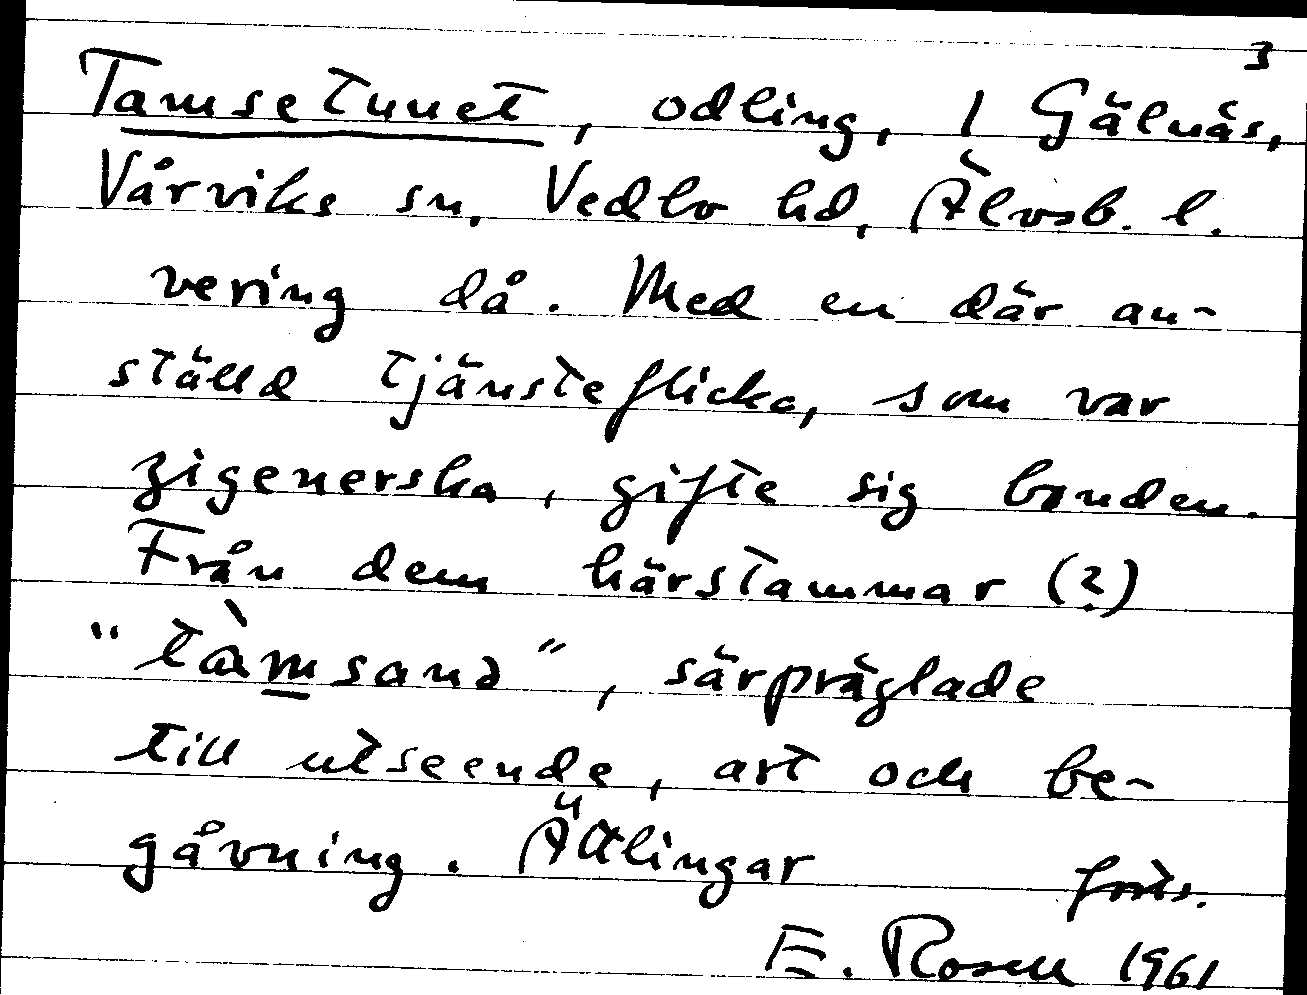 3
Tamsetunet, odling, i Gälnäs,
Vårviks sn, Vedbo hd, Älvsb. l.
vering då. Med en där an-
ställd tjänsteflicka, som var
zigenerska, gifte sig bonden.
Från dem härstammar (?)
"tàmsana", särpräglade
till utseende, art och be-
gåvning. Ättlingar forts.
E. Rosell 1961